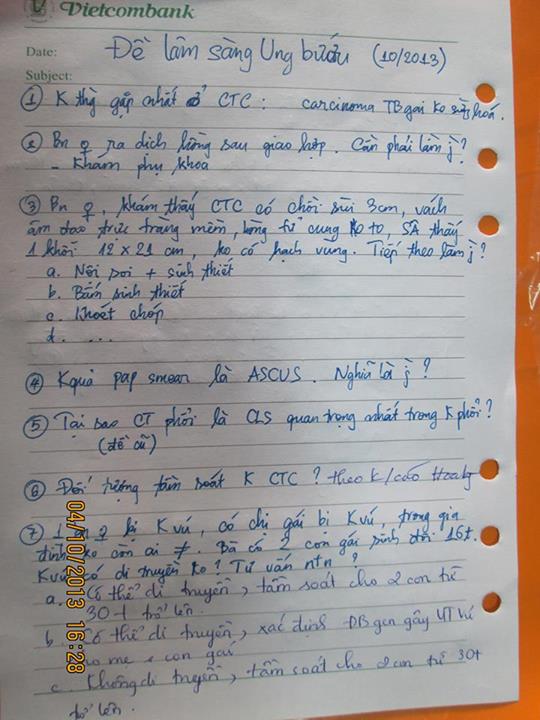 Vietcombank
Date: Đề lâm sàng Ung bướu (10/2013)
Subject:
① K thg gặp nhất ở CTC : carcinoma TB gai ko sừng hoá.
② Bn ♀ ra dịch lòng sau giao hợp. Cần phải làm j?
- Khám phụ khoa
③ Bn ♀, khám thấy CTC có chồi sùi 3cm, vách
âm đạo trực tràng mềm, lòng tử cung ko to, SÂ thấy
1 khối 12 x 21 cm, ko có hạch vùng. Tiếp theo làm j?
a. Nội soi + sinh thiết
b. Bấm sinh thiết
c. Khoét chóp
d. ....
④ Kquả pap smear là ASCUS. Nghĩa là j?
⑤ Tại sao CT phổi là CLS quan trọng nhất trong K phổi?
(đề cũ)
⑥ Đối tượng tầm soát K CTC ? theo K/cáo Hoa kỳ
⑦ 1 ♀ bị K vú, có chị gái bị K vú, trong gia
đình ko còn ai ≠. Bà có 2 con gái sinh đôi 16t.
K vú có di truyền ko? Tư vấn ntn?
a. Có thể di truyền, tầm soát cho 2 con từ
30t trở lên.
b. Có thể di truyền, xác định ĐB gen gây UT vú
cho mẹ & con gái
c. Không di truyền, tầm soát cho 2 con từ 30t
trở lên.
04/10/2013 16:28